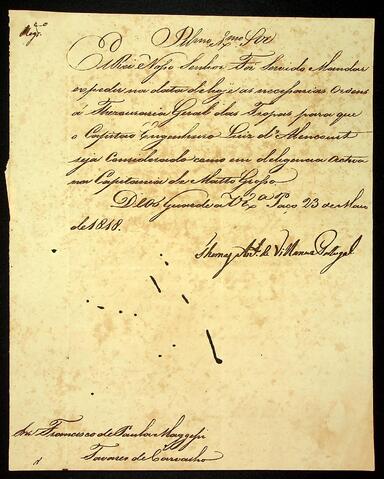 Reg.do
Illmo. Exmo. Snr.
El Rei Nosso Senhor Foi Servido Mandar
expedir na data de hoje as necessarias Ordens
á Thezouraria Geral das Tropas para que
o Capitão Engenheiro Luiz d'Alencourt
seja considerado como em deligencia activa
na Capitania de Matto Grosso
Deos Guarde a V. Exa. Paço 23 de Maio
de 1818.
Thomaz Ant. de Villanova Portugal
Snr. Francisco de Paula Maggessi
Tavares de Carvalho